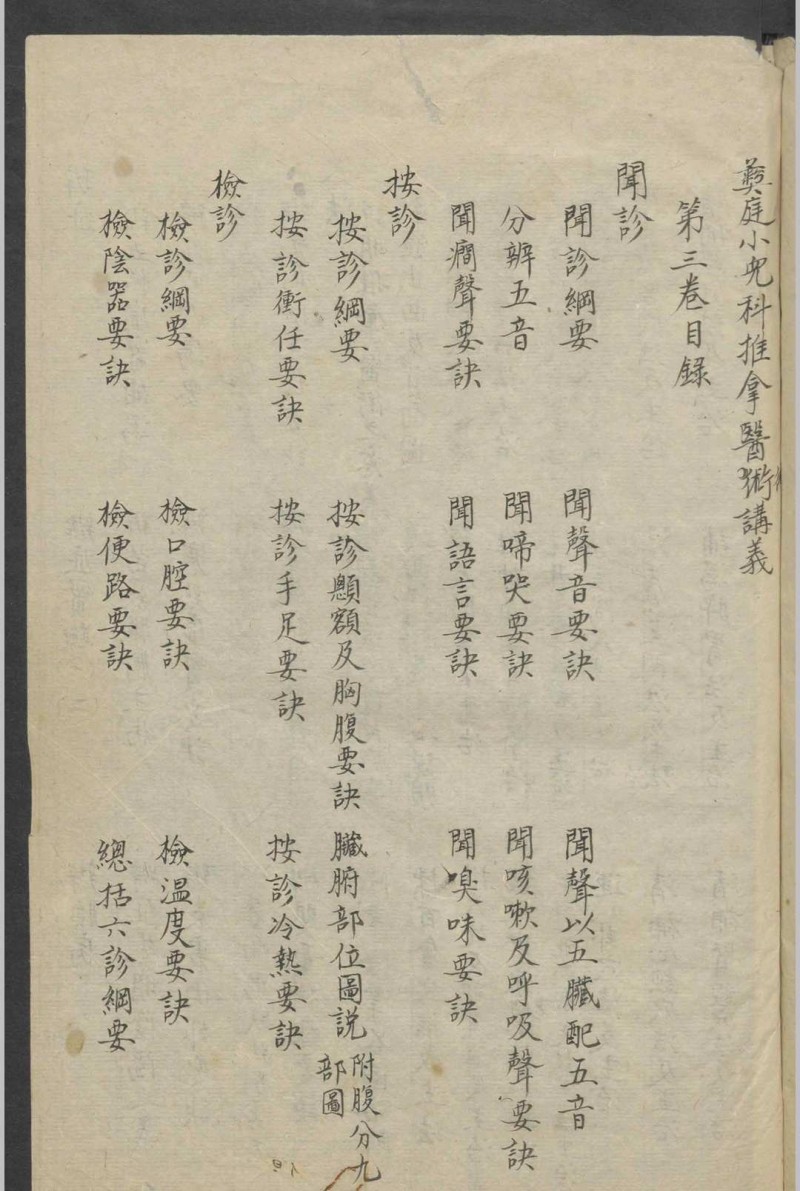 彝庭小兒科推拿醫術講義
第三卷目錄
聞診
聞診綱要　聞聲音要訣　聞聲以五臟配五音
分辨五音　聞啼哭要訣　聞咳嗽及呼吸聲要訣
聞癇聲要訣　聞語言要訣　聞嗅味要訣
按診
按診綱要　按診顋額及胸腹要訣　臟腑部位圖說　附腹分九部圖
按診衝任要訣　按診手足要訣　按診冷熱要訣
檢診
檢診綱要　檢口腔要訣　檢溫度要訣
檢陰器要訣　檢便路要訣　總括六診綱要